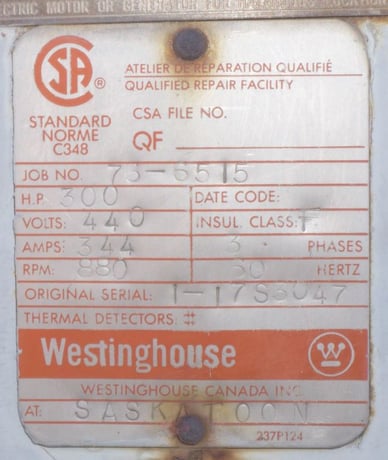 CTRIC MOTOR OR GENERATOR
SA ®
ATELIER DE RÉPARATION QUALIFIÉ
QUALIFIED REPAIR FACILITY
STANDARD
NORME
C348
CSA FILE NO.
QF
JOB NO. 73-6515
H.P. 300 DATE CODE:
VOLTS: 440 INSUL. CLASS: F
AMPS: 344 3 PHASES
RPM: 880 60 HERTZ
ORIGINAL SERIAL: 1-17S3047
THERMAL DETECTORS: #
Westinghouse W
WESTINGHOUSE CANADA INC.
AT: SASKATOON
237P124